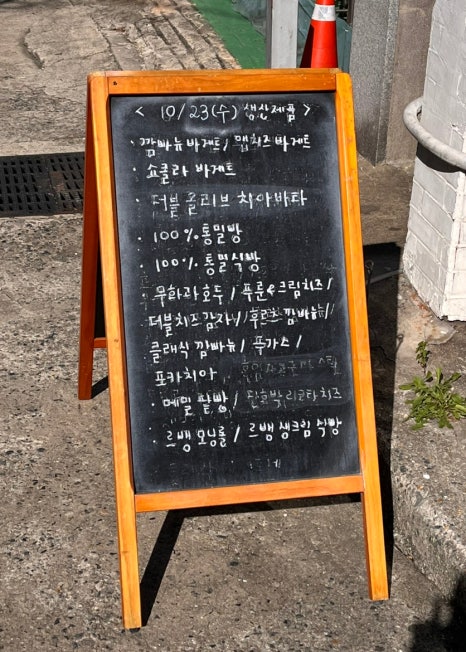 < 10/23(수) 생산제품 >
· 깜빠뉴 바게트 / 햄치즈바게트
· 쇼콜라 바게트
· 더블 올리브 치아바타
· 100% 통밀빵
· 100% 통밀식빵
· 무화과호두 / 푸룬&크림치즈 /
더블치즈감자 / 후르츠 깜빠뉴 /
클래식 깜빠뉴 / 푸가스 /
포카치아
· 메밀 팥빵 / 단호박 리코타치즈
· 르뱅 모닝롤 / 르뱅 생크림 식빵